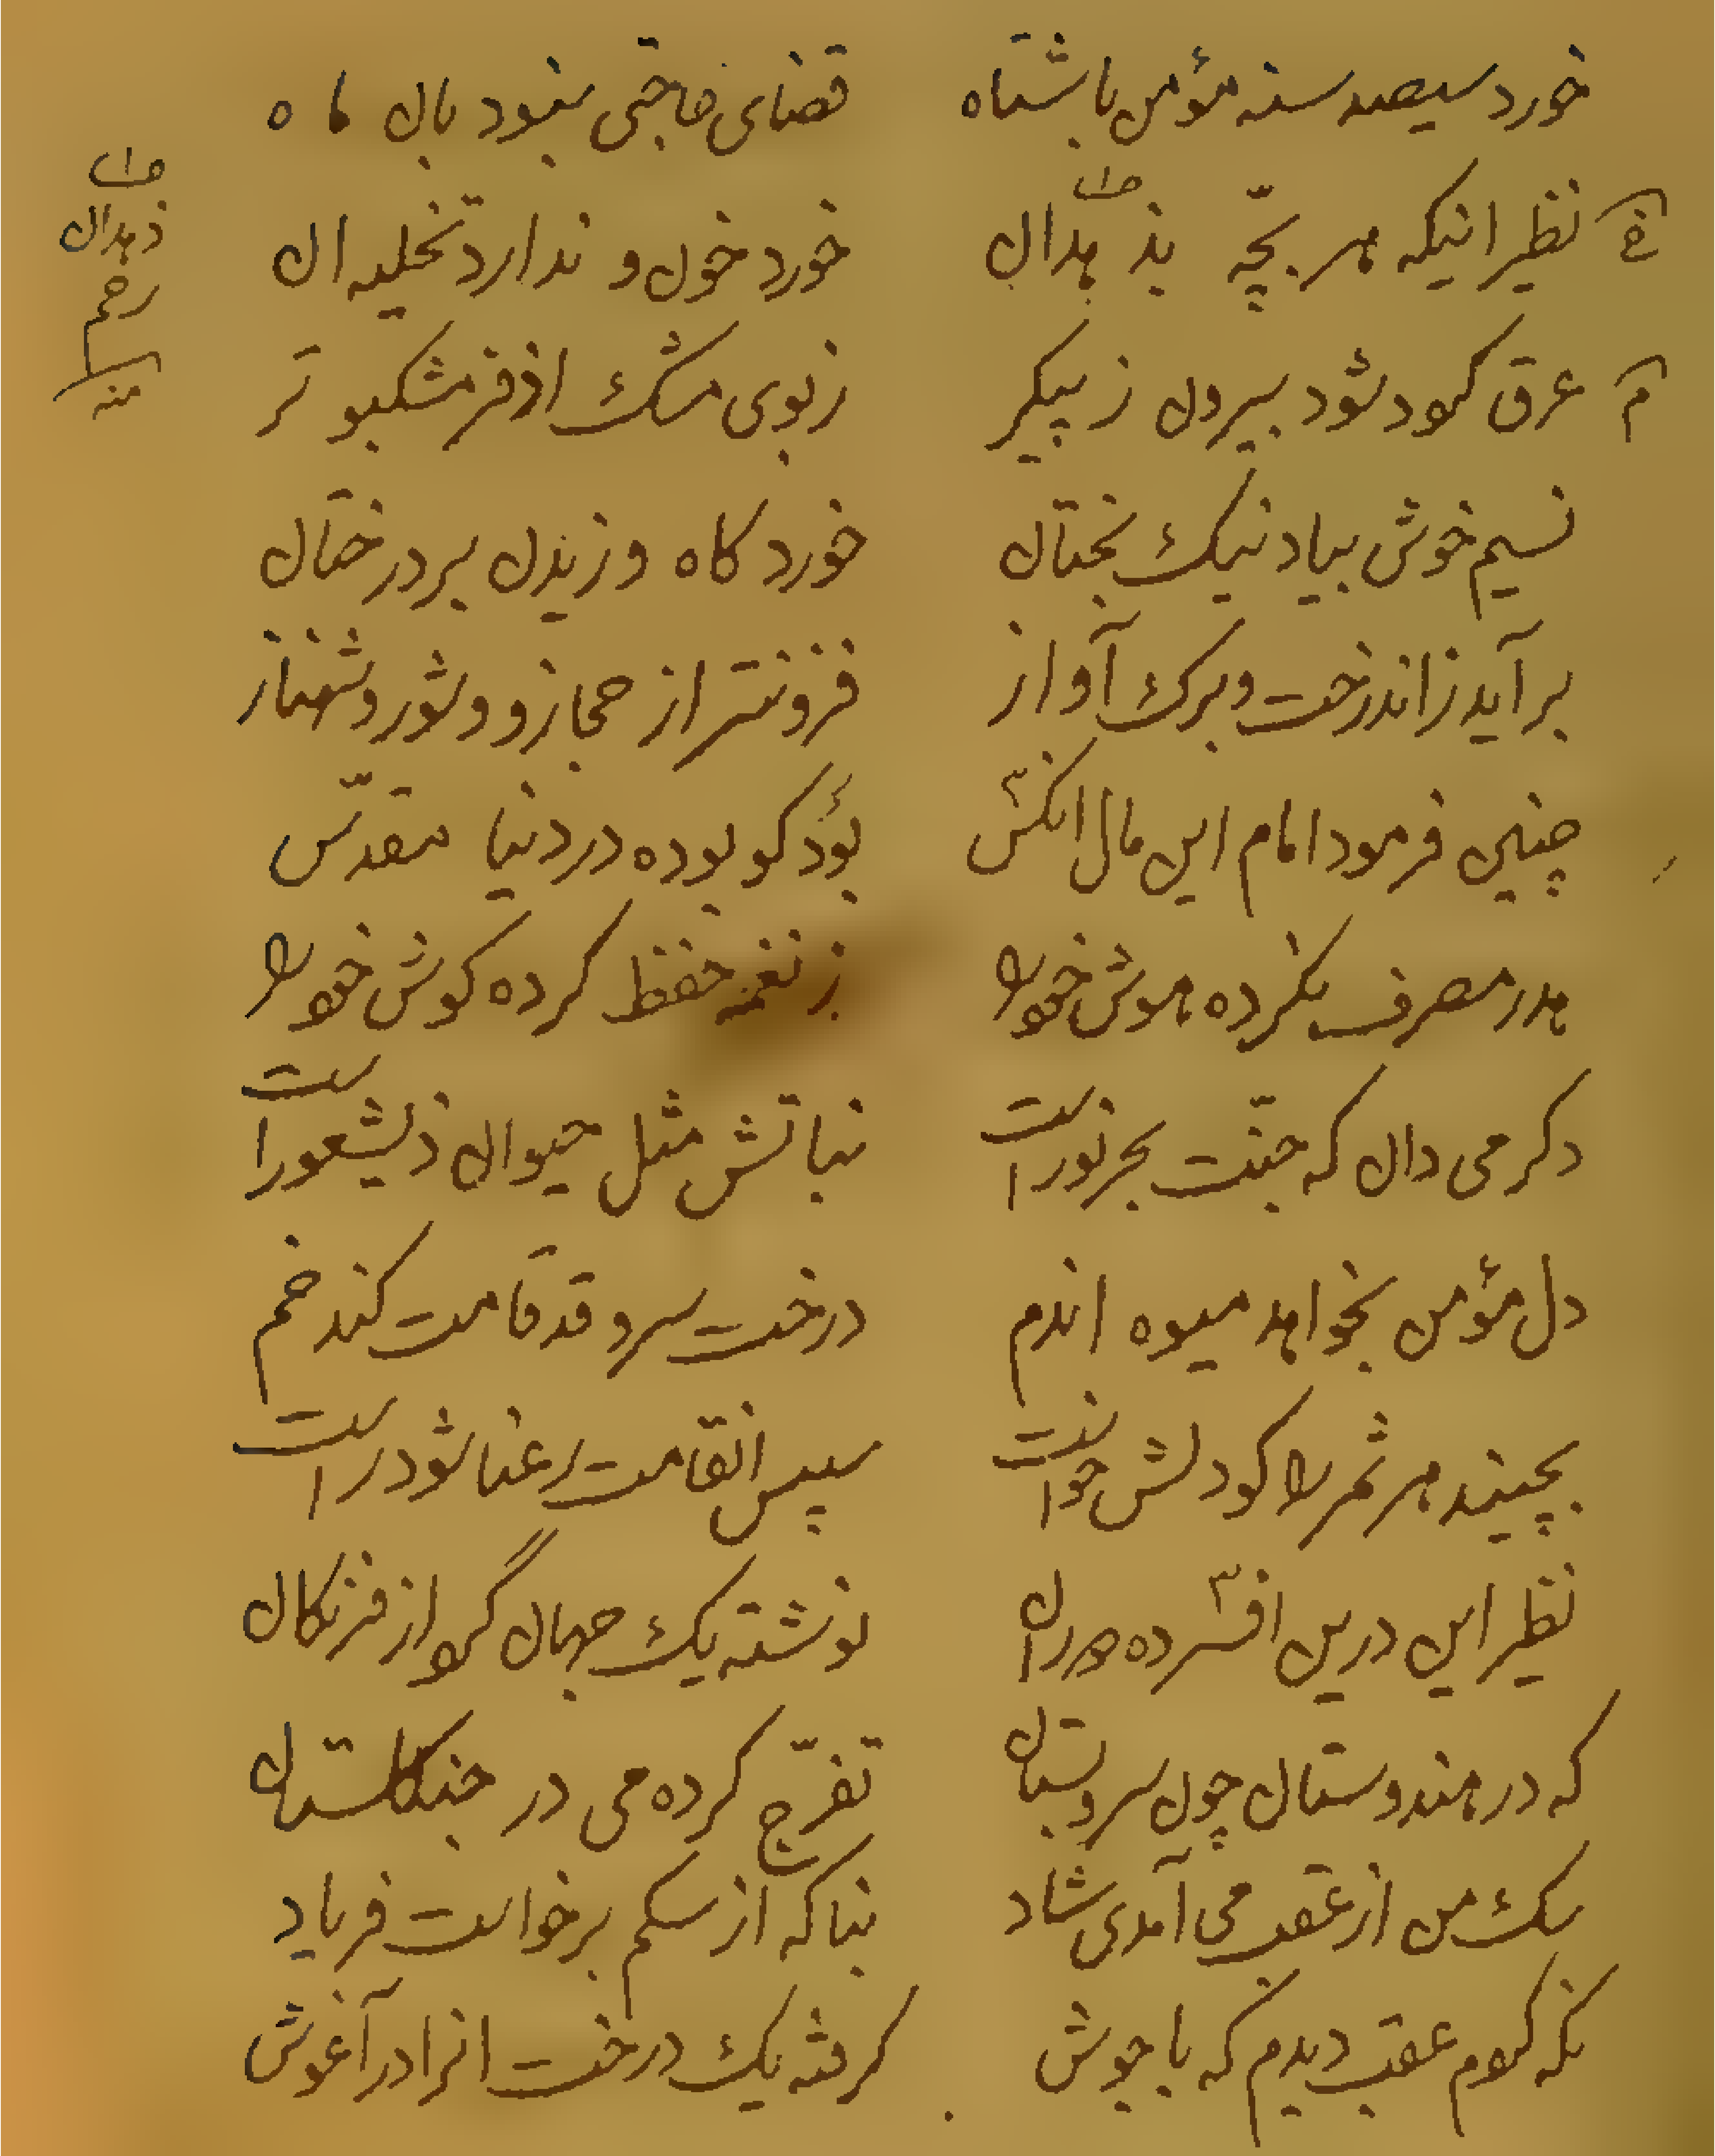 خورد سیصد سنه مؤمن باشتاه قضای حاجتی نبود بان ماه
نظیر اینکه هر بچّه بذهدان خورد خون و ندارد تخلیه ان
عرق کود شود بیرون ز پیکر زبوی مشک اذفر مشکبو تر
نسیم خوش بیاد نیک بختان خورد کاه وزیدن بر درختان
بر آید زاندرخت و برک آواز فزونتر از حجاز و و شور و شهناز
چنین فرمود امام این مال انکس بود کو بوده در دنیا مقدّس
هدر مصرف نکرده هوش خود را ز نغمه حفظ کرده کوش خود را
دکر می دان که جنّت بحر نور است نباتش مثل حیوان ذیشعور است
دل مؤمن بخواهد میوه اندم درخت سرو قد قامت کند خم
بچینند هر ثمر را کو دلش خواست سپس انقامت رعنا شود راست
نظیر این درین افسرده دوران نوشته یک جهان گرد از فرنکان
که در هندوستان چون سروبستان تفرّج کرده می در جنکلستان
سک من از عقب می آمدی شاد بناکه از سکم برخواست فریاد
نکه کردم عقب دیدم که با جوش کرفته یک درخت انرا در آغوش
ذهدان
رحم
منه